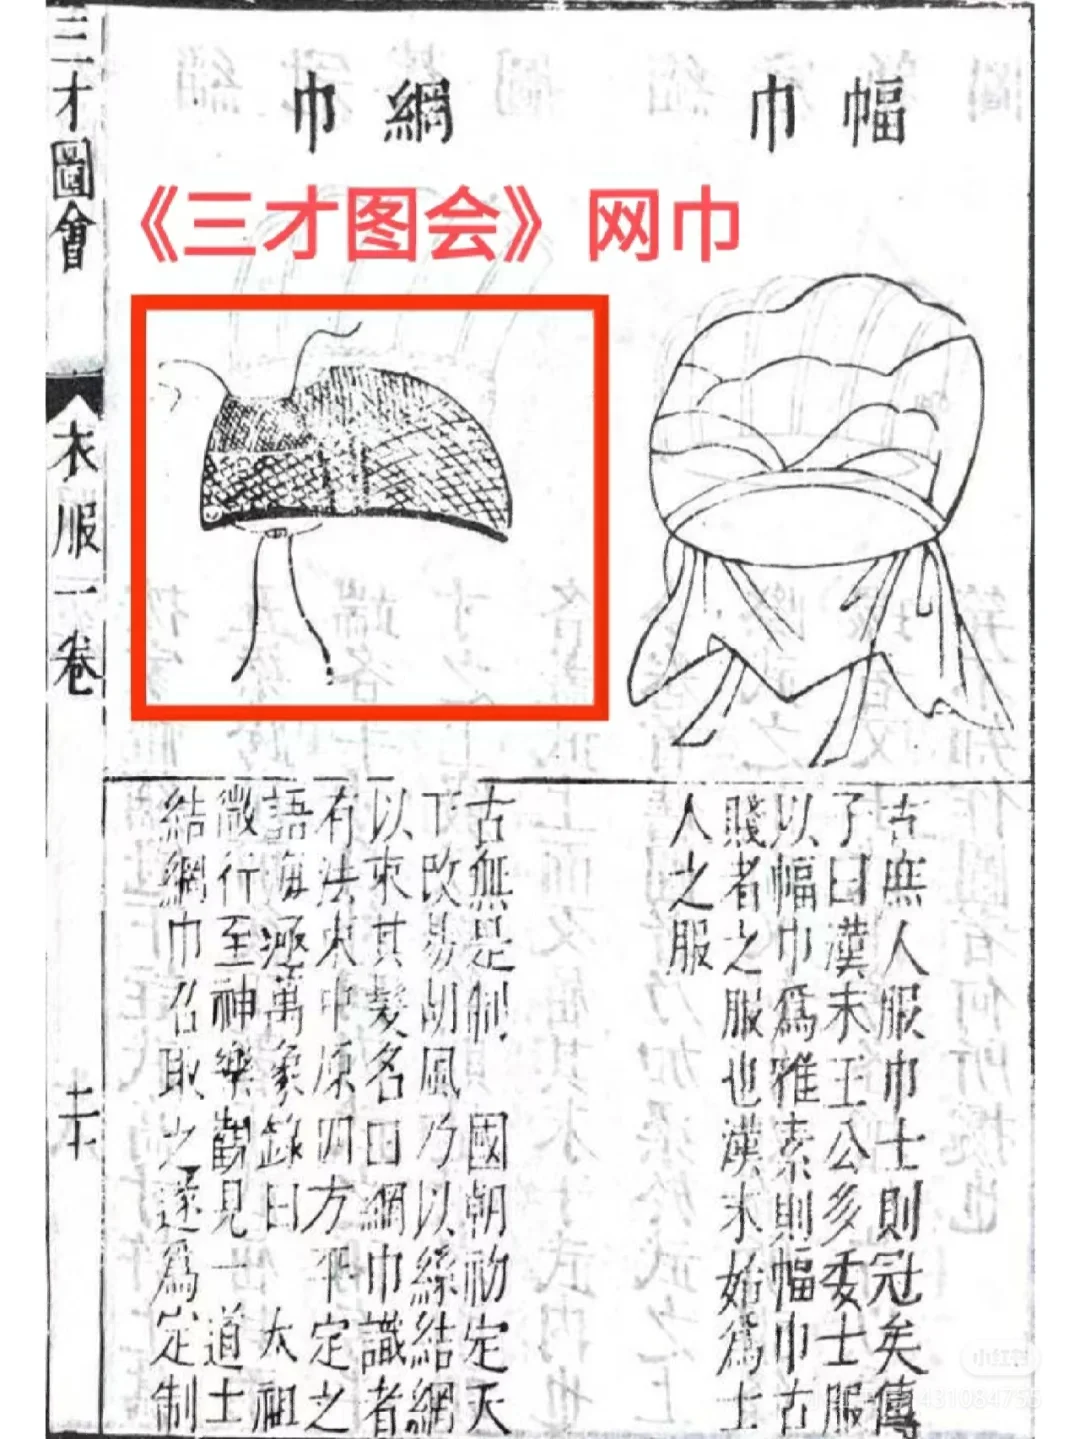 三才圖會
衣服一卷
《三才图会》网巾
幅巾
古庶人服巾士則冠矣傳
子曰漢末王公多委士服
以幅巾爲雅素則幅巾古
賤者之服也漢末始爲士
人之服
網巾
古無是制 國朝初定天
下改易胡風乃以絲結網
以束其髮名曰網巾識者
有法束中原四方平定之
語海涵萬象錄曰 太祖
微行至神樂觀見一道士
結網巾召取之遂爲定制
小红书